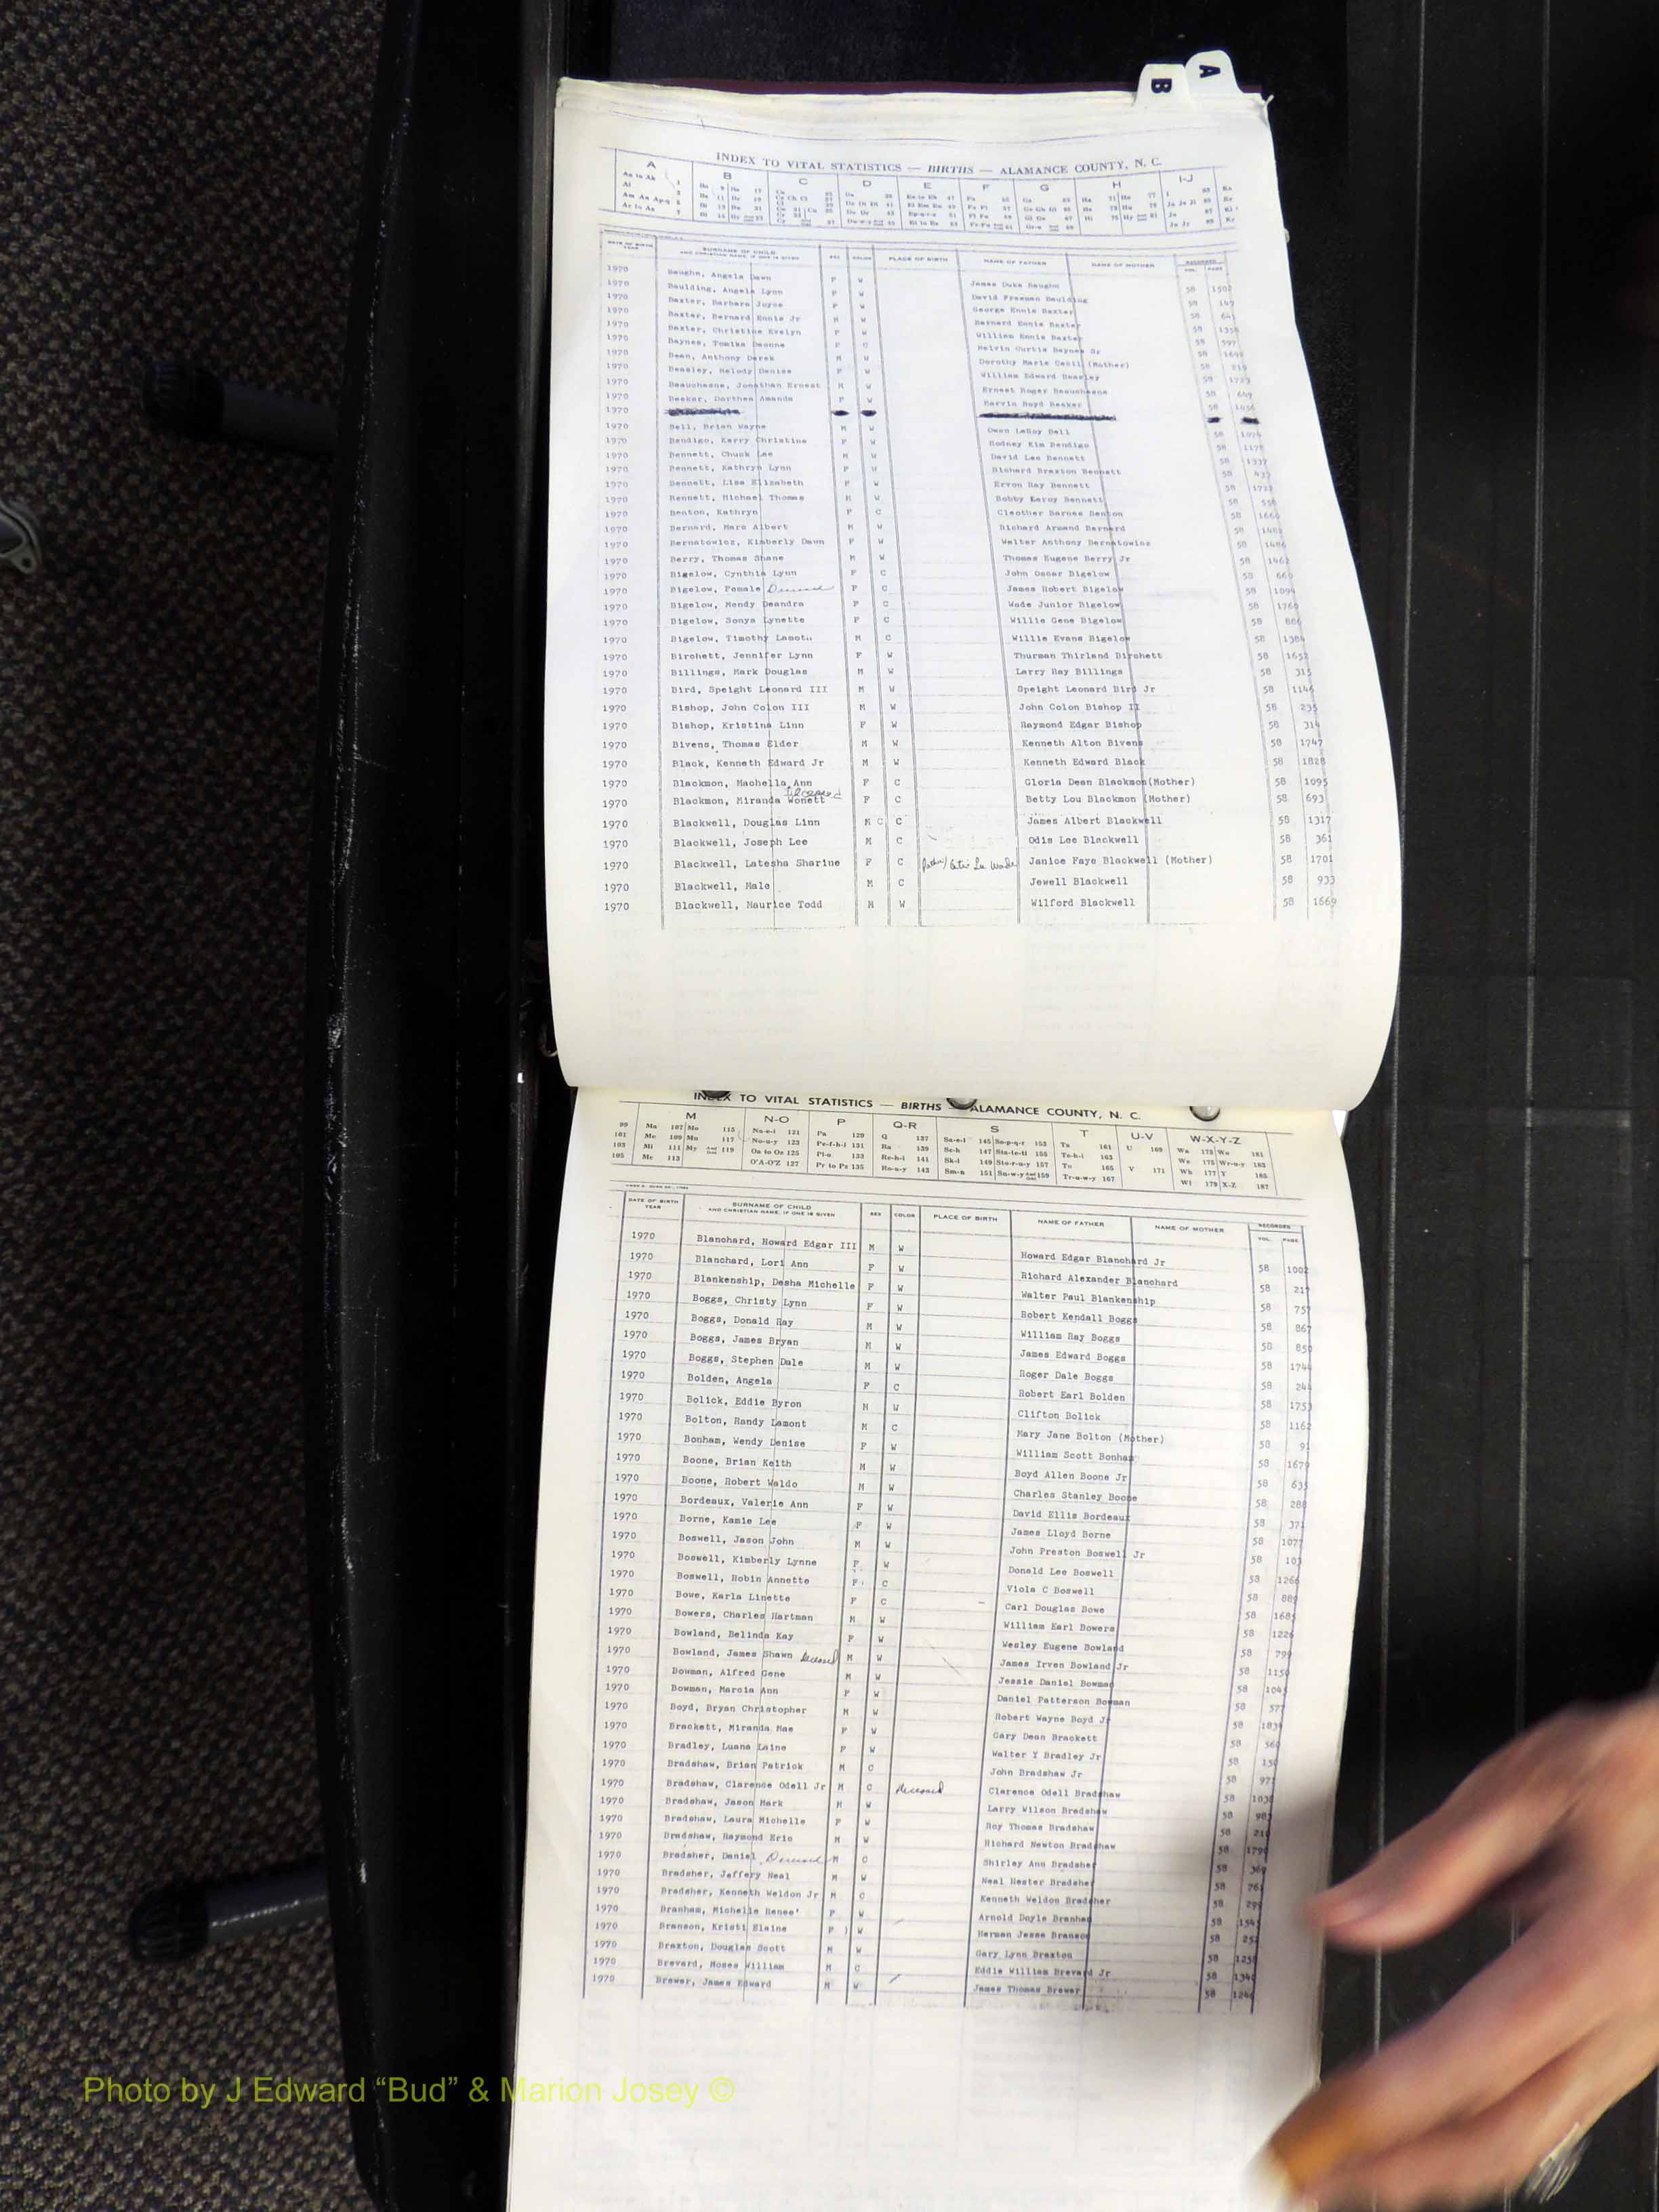 A
B
INDEX TO VITAL STATISTICS — BIRTHS — ALAMANCE COUNTY, N. C.
A B C D E F G H I-J
SURNAME OF CHILD
AND CHRISTIAN NAME, IF ONE IS GIVEN SEX COLOR PLACE OF BIRTH NAME OF FATHER NAME OF MOTHER
1970 Baughn, Angela Dawn F W James Duke Baughn 58 1502
1970 Baulding, Angela Lynn F W David Freeman Baulding 58
1970 Baxter, Barbara Joyce F W George Ennis Baxter 58
1970 Baxter, Bernard Ennis Jr M W Bernard Ennis Baxter 58
1970 Baxter, Christine Evelyn F W William Ennis Baxter 58
1970 Baynes, Tomika Deonne F C Melvin Curtis Baynes Sr 58
1970 Bean, Anthony Derek M W Dorothy Marie Cecil (Mother) 58
1970 Beasley, Melody Denise F W William Edward Beasley 58
1970 Beauchesne, Jonathan Ernest M W Ernest Roger Beauchesne 58
1970 Beeker, Darthea Amanda F W Marvin Boyd Beeker 58
1970
1970 Bell, Brian Wayne M W Owen LeRoy Bell 58
1970 Bendigo, Kerry Christine F W Rodney Kim Bendigo 58
1970 Bennett, Chuck Lee M W David Lee Bennett 58
1970 Bennett, Kathryn Lynn F W Richard Braxton Bennett 58
1970 Bennett, Lisa Elizabeth F W Ervon Ray Bennett 58
1970 Bennett, Michael Thomas M W Bobby Leroy Bennett 58
1970 Benton, Kathryn F C Cleother Barnes Benton 58
1970 Bernard, Marc Albert M W Richard Armand Bernard 58
1970 Bernatowicz, Kimberly Dawn F W Walter Anthony Bernatowicz 58 1486
1970 Berry, Thomas Shane M W Thomas Eugene Berry Jr 58 1462
1970 Bigelow, Cynthia Lynn F C John Oscar Bigelow 58
1970 Bigelow, Female Deceased F C James Robert Bigelow 58 1094
1970 Bigelow, Mendy Deandra F C Wade Junior Bigelow 58 1760
1970 Bigelow, Sonya Lynette F C Willie Gene Bigelow 58
1970 Bigelow, Timothy M C Willie Evans Bigelow 58 1384
1970 Birchett, Jennifer Lynn F W Thurman Thirland Birchett 58 1652
1970 Billings, Mark Douglas M W Larry Ray Billings 58 315
1970 Bird, Speight Leonard III M W Speight Leonard Bird Jr 58 1146
1970 Bishop, John Colon III M W John Colon Bishop II 58 235
1970 Bishop, Kristina Linn F W Raymond Edgar Bishop 58 314
1970 Bivens, Thomas Elder M W Kenneth Alton Bivens 58 1747
1970 Black, Kenneth Edward Jr M W Kenneth Edward Black 58 1828
1970 Blackmon, Machella Ann F C Gloria Dean Blackmon (Mother) 58 1095
1970 Blackmon, Miranda Wonett Deceased F C Betty Lou Blackmon (Mother) 58 693
1970 Blackwell, Douglas Linn M C C James Albert Blackwell 58 1317
1970 Blackwell, Joseph Lee M C Odis Lee Blackwell 58 361
1970 Blackwell, Latesha Sharine F C Janice Faye Blackwell (Mother) 58 1701
1970 Blackwell, Male M C Jewell Blackwell 58 933
1970 Blackwell, Maurice Todd M W Wilford Blackwell 58 1669
INDEX TO VITAL STATISTICS — BIRTHS — ALAMANCE COUNTY, N. C.
M N-O P Q-R S T U-V W-X-Y-Z
99 Ma 107 Mo 115 Na-e-i 121 Pa 129 Q 137 Sa-e-i 145 Sn-p-q-r 153 Ta 161 U 169 Wa 173 Wo 181
101 Mc 109 Mu 117 No-u-y 123 Pe-f-h-i 131 Ra 139 Sc-h 147 Sta-te-ti 155 Te-h-i 163 We 175 Wr-u-y 183
103 Mi 111 My 119 Oa to Oz 125 Pl-o 133 Re-h-i 141 Sk-l 149 Sto-r-u-y 157 To 165 V 171 Wh 177 Y 185
105 Mc 113 O'A-O'Z 127 Pr to Pz 135 Ro-u-y 143 Sm-n 151 Su-w-y 159 Tr-u-w-y 167 Wi 179 X-Z 187
DATE OF BIRTH
YEAR SURNAME OF CHILD
AND CHRISTIAN NAME, IF ONE IS GIVEN SEX COLOR PLACE OF BIRTH NAME OF FATHER NAME OF MOTHER RECORDED
VOL. PAGE
1970 Blanchard, Howard Edgar III M W Howard Edgar Blanchard Jr 58 1002
1970 Blanchard, Lori Ann F W Richard Alexander Blanchard 58
1970 Blankenship, Desha Michelle F W Walter Paul Blankenship 58
1970 Boggs, Christy Lynn F W Robert Kendall Boggs 58 867
1970 Boggs, Donald Ray M W William Ray Boggs 58
1970 Boggs, James Bryan M W James Edward Boggs 58 1744
1970 Boggs, Stephen Dale M W Roger Dale Boggs 58
1970 Bolden, Angela F C Robert Earl Bolden 58 1753
1970 Bolick, Eddie Byron M W Clifton Bolick 58 1162
1970 Bolton, Randy Lamont M C Mary Jane Bolton (Mother) 58
1970 Bonham, Wendy Denise F W William Scott Bonham 58 1679
1970 Boone, Brian Keith M W Boyd Allen Boone Jr 58 635
1970 Boone, Robert Waldo M W Charles Stanley Boone 58
1970 Bordeaux, Valerie Ann F W David Ellis Bordeaux 58
1970 Borne, Kamie Lee F W James Lloyd Borne 58 1077
1970 Boswell, Jason John M W John Preston Boswell Jr 58
1970 Boswell, Kimberly Lynne F W Donald Lee Boswell 58 1266
1970 Boswell, Robin Annette F C Viola C Boswell 58
1970 Bowe, Karla Linette F C Carl Douglas Bowe 58 1685
1970 Bowers, Charles Hartman M W William Earl Bowers 58 1226
1970 Bowland, Belinda Kay F W Wesley Eugene Bowland 58
1970 Bowland, James Shawn deceased M W James Irven Bowland Jr 58 1150
1970 Bowman, Alfred Gene M W Jessie Daniel Bowman 58
1970 Bowman, Marcia Ann F W Daniel Patterson Bowman 58
1970 Boyd, Bryan Christopher M W Robert Wayne Boyd Jr 58
1970 Brackett, Miranda Mae F W Gary Dean Brackett 58
1970 Bradley, Luana Laine F W Walter Y Bradley Jr 58
1970 Bradshaw, Brian Patrick M C John Bradshaw Jr 58
1970 Bradshaw, Clarence Odell Jr M C deceased Clarence Odell Bradshaw 58
1970 Bradshaw, Jason Mark M W Larry Wilson Bradshaw 58
1970 Bradshaw, Laura Michelle F W Roy Thomas Bradshaw 58
1970 Bradshaw, Raymond Eric M W Richard Newton Bradshaw 58
1970 Bradsher, Daniel Deceased M C Shirley Ann Bradsher 58
1970 Bradsher, Jeffery Neal M W Neal Hester Bradsher 58
1970 Bradsher, Kenneth Weldon Jr M C Kenneth Weldon Bradsher 58
1970 Branham, Michelle Renee' F W Arnold Doyle Branham 58
1970 Branson, Kristi Elaine F W Herman Jesse Branson 58
1970 Braxton, Douglas Scott M W Gary Lynn Braxton 58
1970 Brevard, Moses William M C Eddie William Brevard Jr 58
1970 Brewer, James Edward M W James Thomas Brewer 58
Photo by J Edward “Bud” & Marion Josey ©